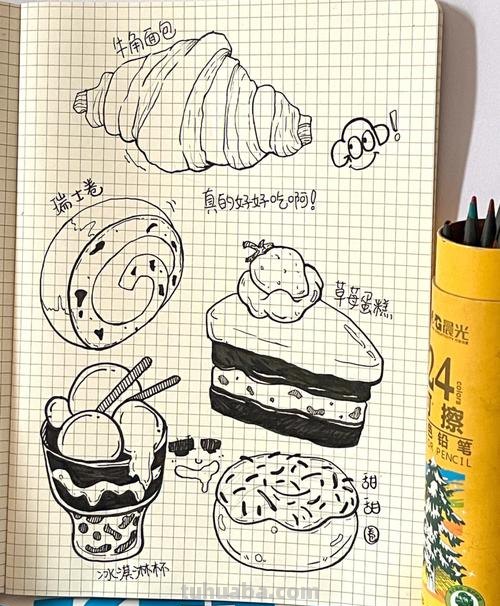 牛角面包
GOOD!
瑞士卷
真的好好吃啊!
草莓蛋糕
M&G 晨光
24
colors
可擦
彩铅笔
PENCIL
甜
甜
圈
冰淇淋杯
tuhuaba.com